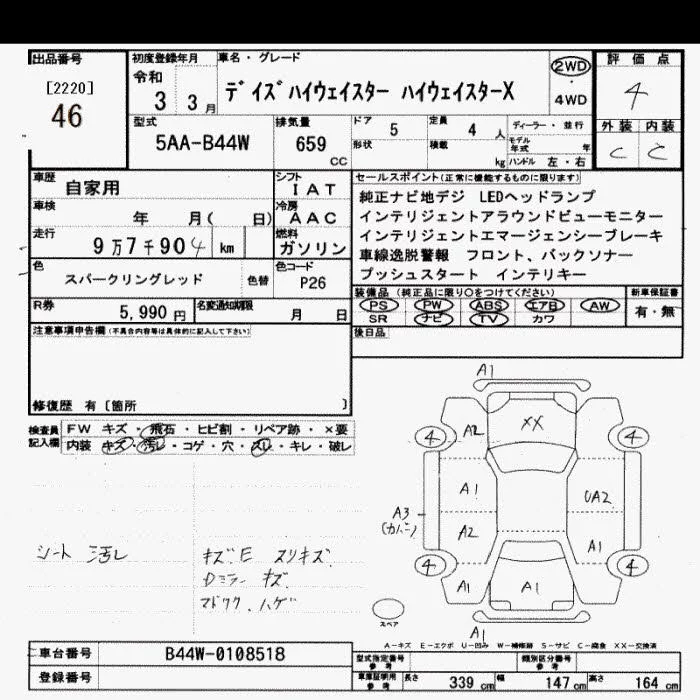 出品番号
[2220]
46
初度登録年月
令和
3 3月
車名・グレード
デイズハイウェイスター ハイウェイスターX
2WD
・
4WD
評価点
4
外装 内装
C C
型式
5AA-B44W
排気量
659
CC
ドア 5
定員 4 人
形状
積載 kg
ディーラー・並行
モデル年式 年
ハンドル 左・右
車歴
自家用
シフト
IAT
車検
年 月( 日)
冷房
AAC
走行
9万7千904 km
燃料
ガソリン
色
スパークリングレッド
色替
色コード
P26
R券
5,990円
名変通知期限
月 日
セールスポイント(正常に機能するものに限ります)
純正ナビ地デジ LEDヘッドランプ
インテリジェントアラウンドビューモニター
インテリジェントエマージェンシーブレーキ
車線逸脱警報 フロント、バックソナー
プッシュスタート インテリキー
装備品(純正品に限り○をつけてください)
PS PW ABS エアB AW
SR ナビ TV カワ
新車保証書
有・無
後日品
注意事項申告欄(不具合内容等は具体的に記入して下さい)
修復歴 有〔箇所 〕
検査員
記入欄
FW キズ・飛石・ヒビ割・リペア跡・×要
内装 キズ・汚レ・コゲ・穴・スレ・キレ・破レ
シート 汚レ
キズ、E スリキズ
Dミラー キズ
マドワク ハゲ
A1
A2
XX
4
4
A1
UA2
A3
(カバー)
A2
A1
4
4
A1
A1
A1
スペア
A-キズ E-エクボ U-凹み W-補修跡 S-サビ C-腐食 XX-交換済
車台番号
B44W-0108518
登録番号
型式指定番号
参考
類別区分番号
参考
車庫証明用
参考
長さ 339 cm
幅 147 cm
高さ 164 cm